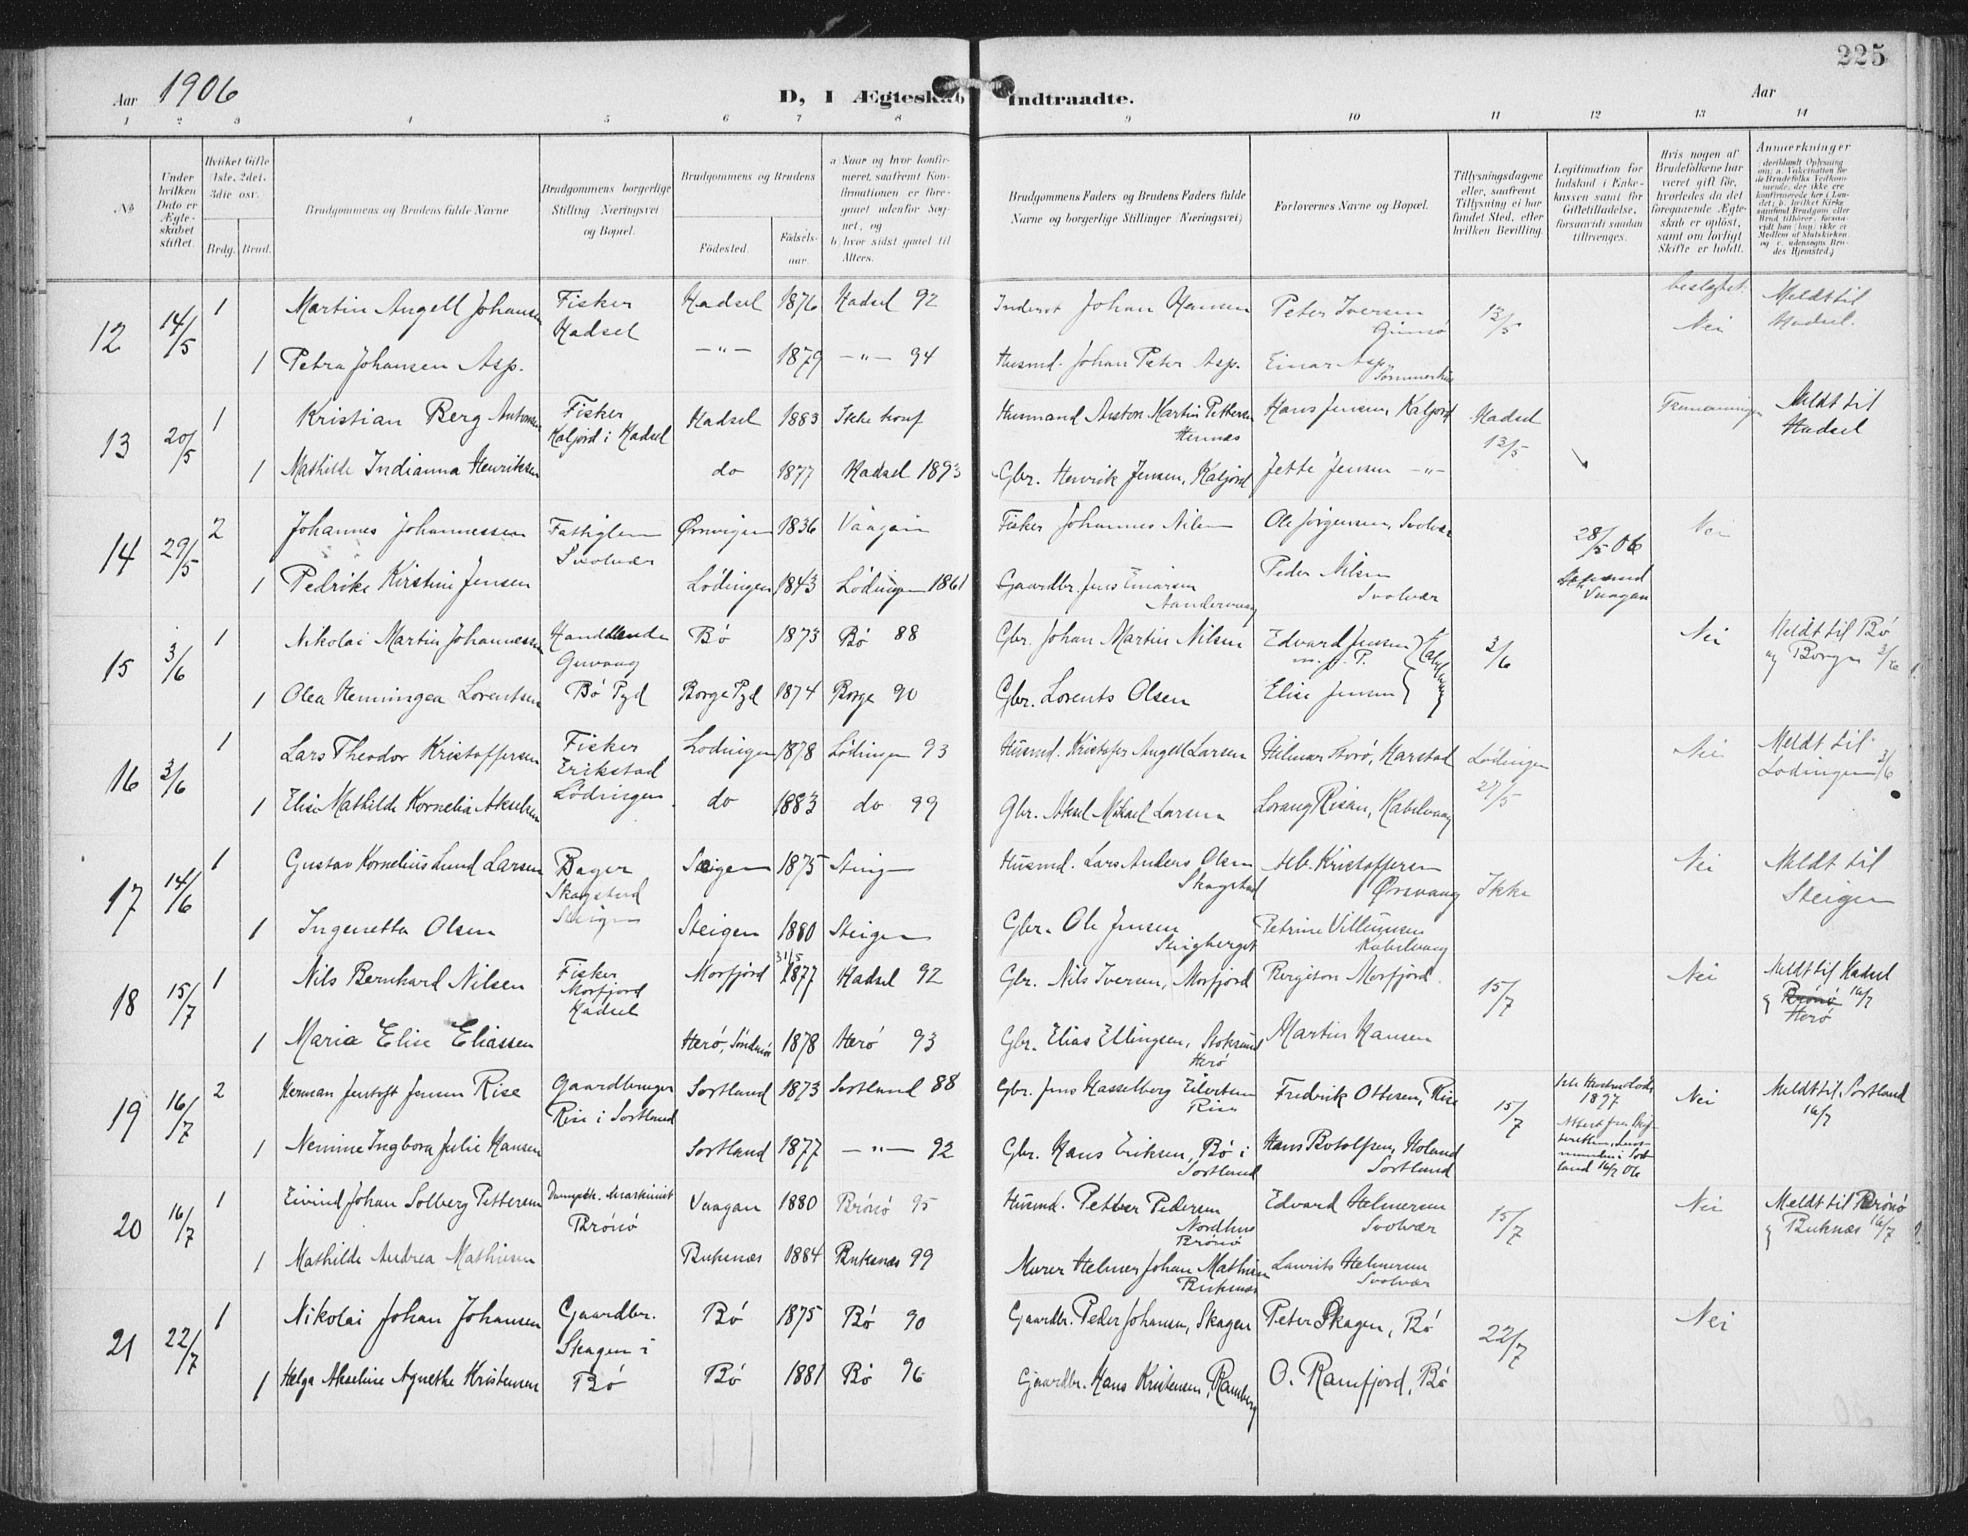 225
Aar 1906
D, I Ægteskab Indtraadte.
Aar
1 2 3 4 5 6 7 8 9 10 11 12 13 14
№
Under hvilken Dato er Ægteskabet stiftet.
Hvilket Gifte (1ste, 2det, 3die osv.
Bedg. Brud.
Brudgommens og Brudens fulde Navne
Brudgommens borgerlige Stilling Næringsvei og Bopæl.
Brudgommens og Brudens
Fødested.
Fødselsaar.
a Naar og hvor konfirmeret, saafremt Konfirmationen er foregaaet udenfor Sognet, og
b hvor sidst gaaet til Alters.
Brudgommens Faders og Brudens Faders fulde Navne og borgerlige Stillinger (Næringsvei)
Forlovernes Navne og Bopæl.
Tillysningsdagene eller, saafremt Tillysning ei har fundet Sted, efter hvilken Bevilling.
Legitimation for Indskud i Enkekassen samt for Giftetilladelse, forsaavidt saadan tiltrænges.
Hvis nogen af Brudefolkene har været gift før, hvorledes da det foregaaende Ægteskab er opløst, samt om lovligt Skifte er holdt.
Anmærkninger
12 14/5 1 Martin Angell Johansen Fisker Hadsel Hadsel 1876 Hadsel 92 Inderst Johan Hansen Peter Iversen Gimsø 13/5 beslegtet. Nei Meldt til Hadsel.
1 Petra Johansen Asp. —"— 1879 —"— 94 Husmd. Johan Peter Asp. Einar Asp
13 20/5 1 Kristian Berg Antonsen Fisker Kaljord i Hadsel Hadsel 1883 Ikke konf Husmand Anton Martin Pettersen Hennes Hans Jensen, Kaljord Hadsel 13/5 Meldt til Hadsel
1 Mathilde Indianna Henriksen do 1877 Hadsel 1893 Gbr. Henrik Jensen, Kaljord Jette Jensen —"—
14 29/5 2 Johannes Johannessen Fattiglem Svolvær Ørsvigen 1836 Vaagan Fisker Johannes Nilsen Ole Jørgensen, Svolvær 28/5 06
1 Pedrike Kirstine Jensen Lødingen 1843 Lødingen 1861 Gaardbr. Jens Einarsen Peder Nilsen Svolvær
15 3/6 1 Nikolai Martin Johannessen Handelende Bø Pgd Bø 1873 Bø 88 Gbr. Johan Martin Nilsen Edvard Jensen 3/6 Nei Meldt til Bø og Borge 3/6
1 Olea Henningea Lorentsen Borge Pgd 1874 Borge 90 Gbr. Lorents Olsen Elise Jensen
16 3/6 1 Lars Theodor Kristoffersen Fisker Erikstad Lødingen Lødingen 1878 Lødingen 93 Husmd. Kristofer Angell Larsen Hilmar Storø, Harstad Lødingen 27/5 Nei Meldt til Lødingen 3/6
1 Elise Mathilde Kornelia Akselsen do 1883 do 99 Gbr. Aksel Mikael Larsen Lorang Risan, Kabelvaag
17 14/6 1 Gustav Kornelius Lund Larsen Bager Skagstad Steigen Steigen 1875 Steigen Husmd. Lars Anders Olsen Skagstad Alb. Kristoffersen Ørsvaag Ikke Nei Meldt til Steigen
1 Ingenetta Olsen Steigen 1880 Steigen Gbr. Ole Jensen Steigberget Petrine Villumsen Kabelvaag
18 15/7 1 Nils Bernhard Nilsen Fisker Morfjord Hadsel Morfjord 31/5 1877 Hadsel 92 Gbr. Nils Iversen, Morfjord Bergiton Morfjord. 15/7 Nei Meldt til Hadsel og Brønø 16/7 Herø
1 Maria Elise Eliassen Herø, Søndmør 1878 Herø 93 Gbr. Elias Ellingsen, Stoksund Herø Martin Hansen
19 16/7 2 Herman Jentoft Jensen Rise Gaardbruger Rise i Sortland Sortland 1873 Sortland 88 Gbr. Jens Hasselberg Eilertsen Rise Fredrik Ottesen, Rise 15/7 1897 Nei Meldt til Sortland 16/7
1 Nennine Ingbora Julie Hansen Sortland 1877 —"— 92 Gbr. Hans Eriksen, Bø i Sortland Hans Botolfsen, Holand Sortland
20 16/7 1 Eivind Johan Solberg Pettersen Dampsk. Maskinist Brønø Vaagan 1880 Brønø 95 Husmd. Petter Pedersen Nordhus Brønø Edvard Helmersen Svolvær 15/7 Nei Meldt til Brønø og Buksnæs 16/7
1 Mathilde Andrea Mathisen Buksnæs 1884 Buksnæs 99 Murer Helmer Johan Mathisen Buksnæs Laurits Helmersen Svolvær
21 22/7 1 Nikolai Johan Johansen Gaardbr. Skagen i Bø Bø 1875 Bø 90 Gaardbr. Peder Johansen, Skagen Peter Skagen, Bø 22/7 Nei
1 Helga Akseline Agnethe Kristensen Bø 1881 Bø 96 Gaardbr. Hans Kristensen, Ramberg O. Ramfjord, Bø